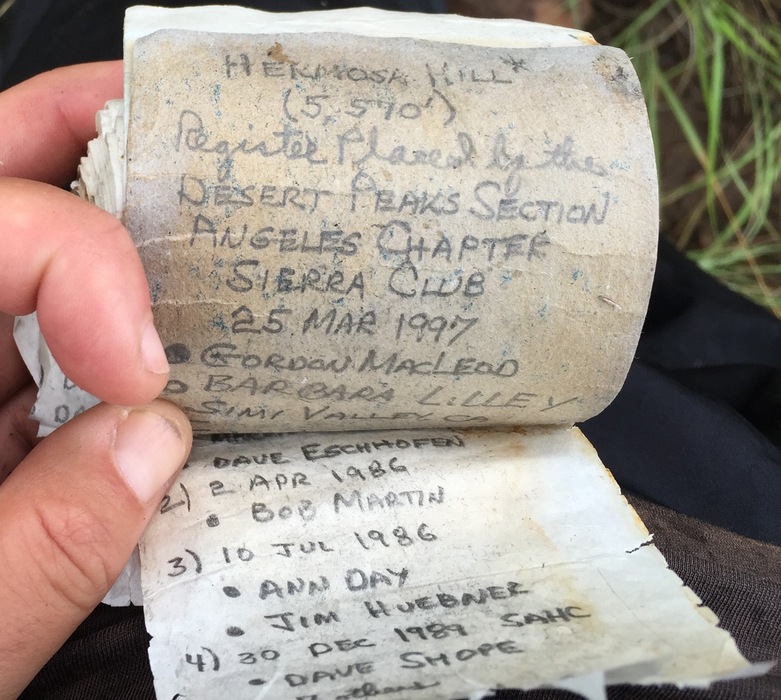 HERMOSA HILL*
(5,570')
Register Placed by the
DESERT PEAKS SECTION
ANGELES CHAPTER
SIERRA CLUB
25 MAR 1997
• GORDON MACLEOD
BARBARA LILLEY
SIMI VALLEY
DAVE ESCHHOFEN
2) 2 APR 1986
• BOB MARTIN
3) 10 JUL 1986
• ANN DAY
• JIM HUEBNER
4) 30 DEC 1989 SAHC
• DAVE SHOPE